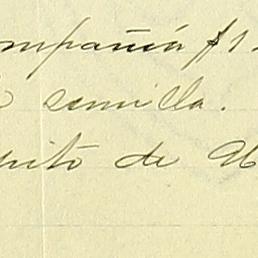 ompañia $1
semilla.
ito de